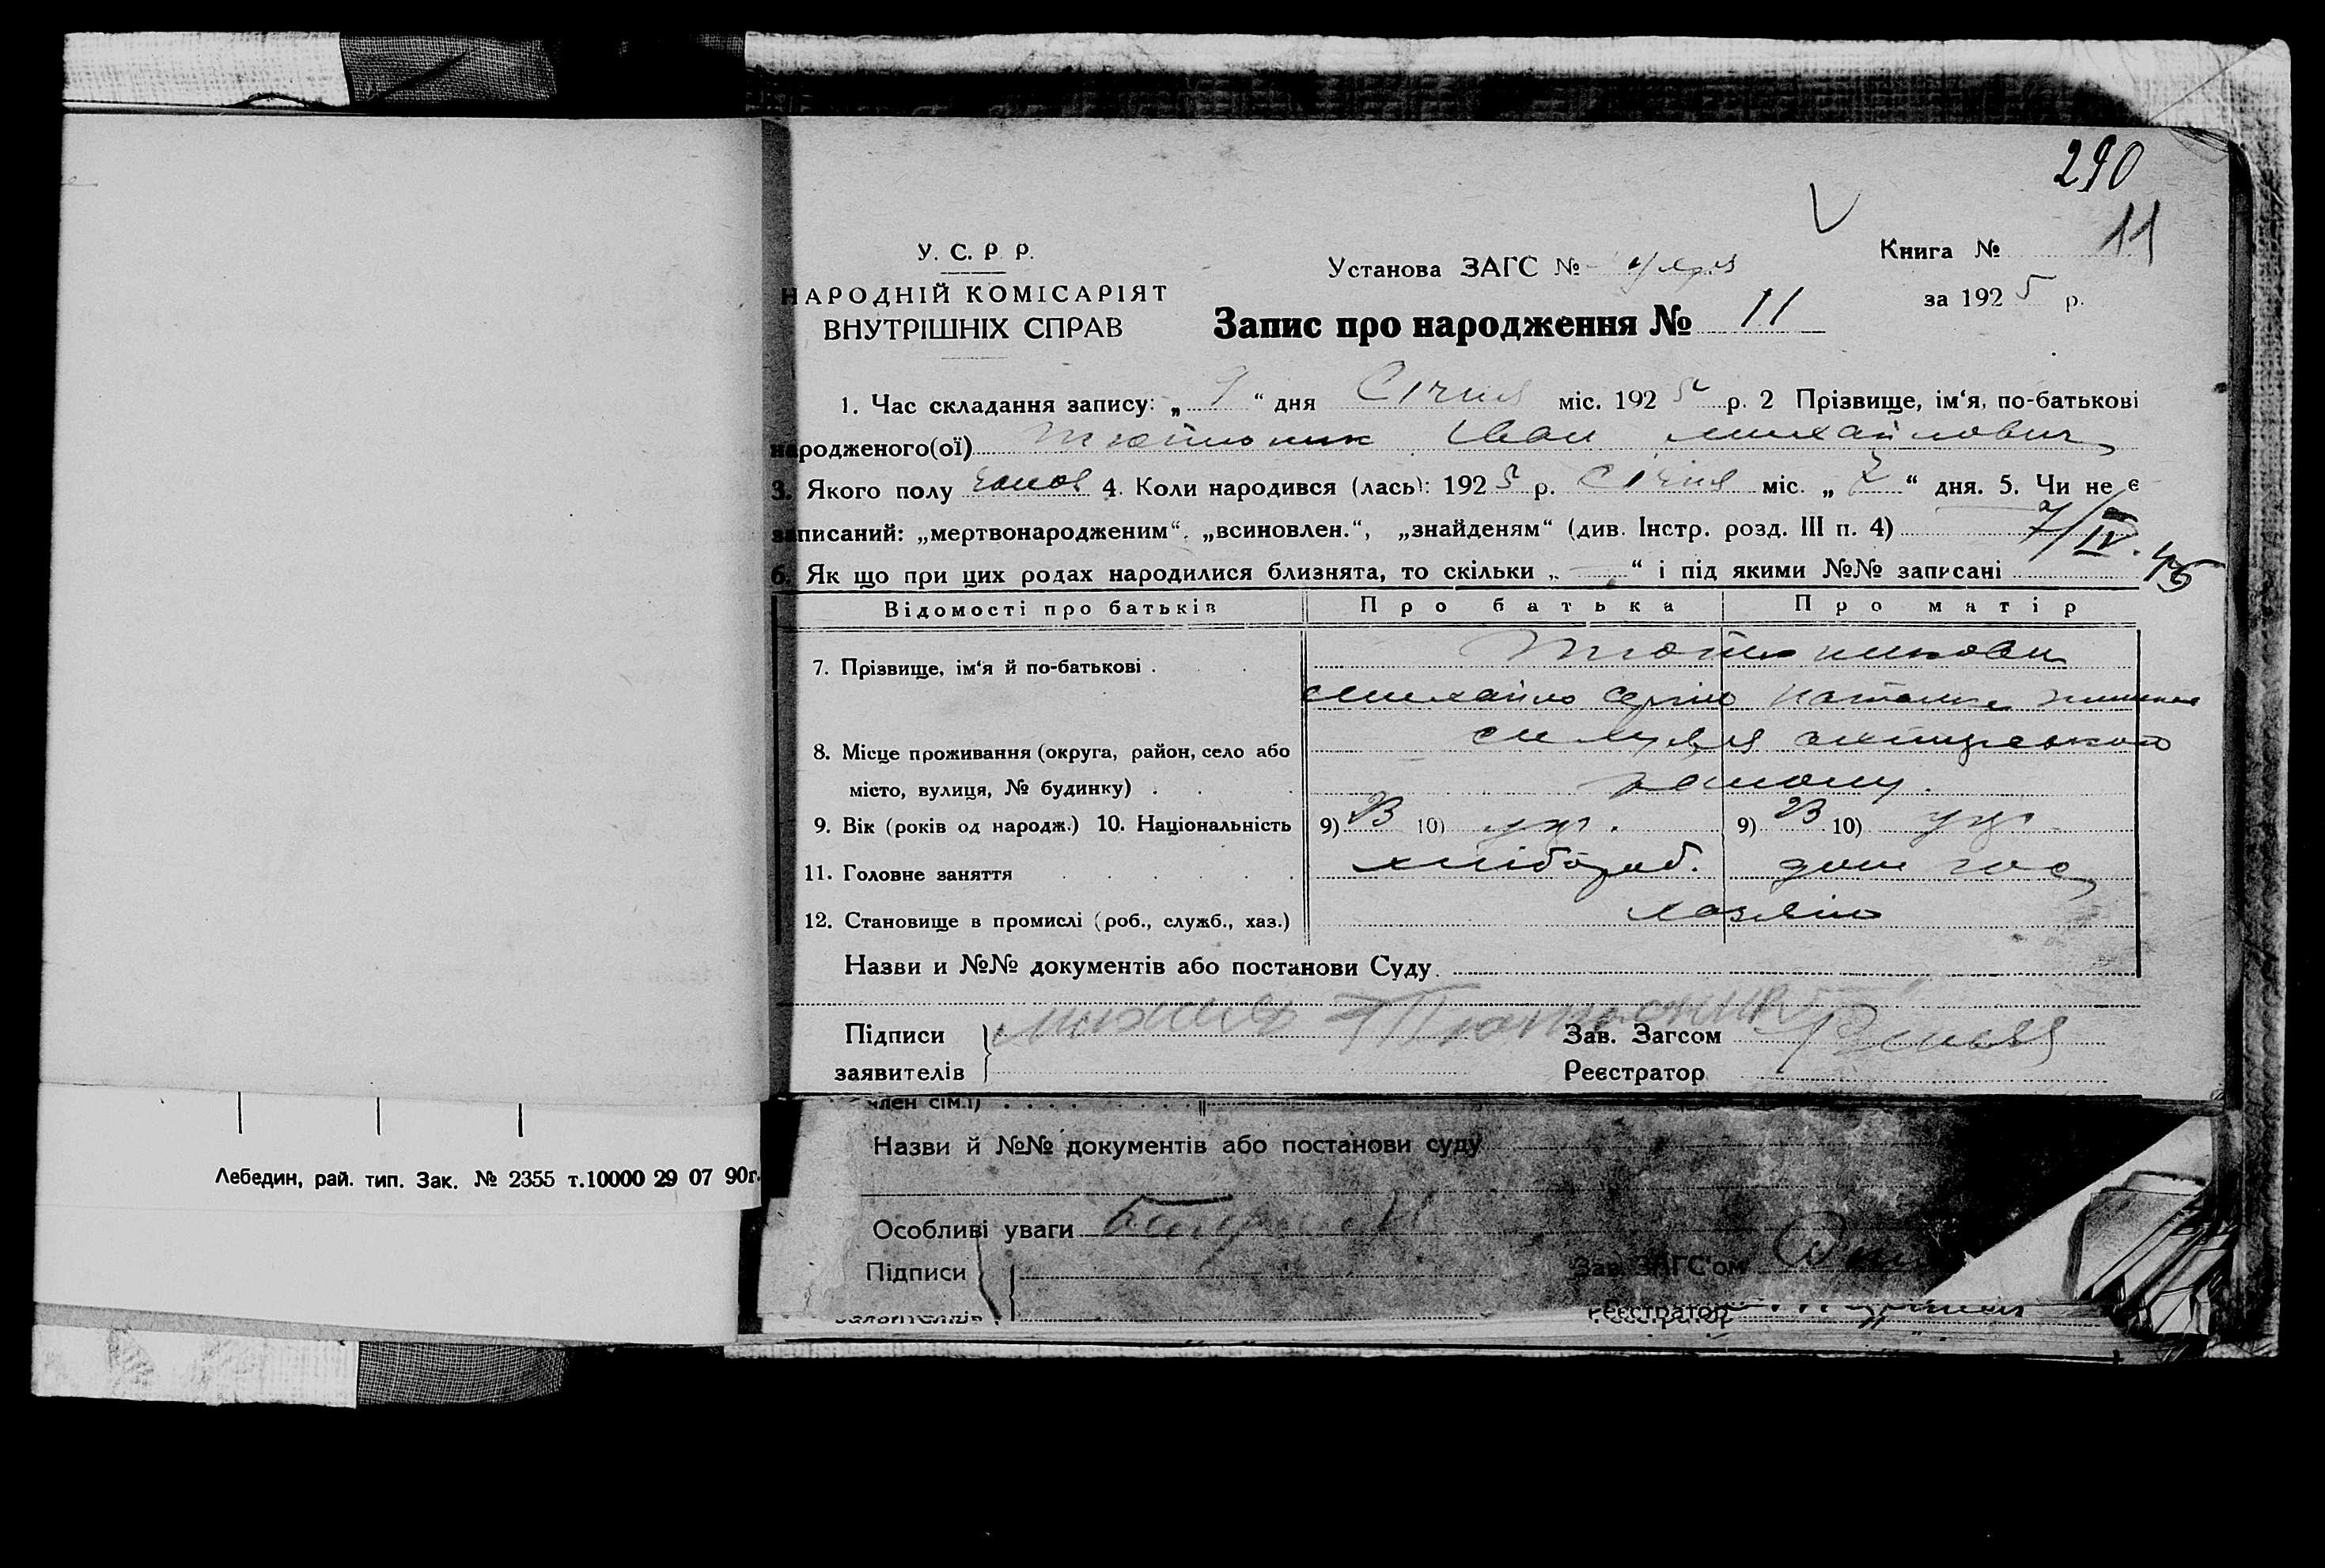 290
У. С. Р. Р.
НАРОДНІЙ КОМІСАРІЯТ
ВНУТРІШНІХ СПРАВ
Установа ЗАГС №
Книга № 11
за 1925 р.
Запис про народження № 11
1. Час складання запису: „ 9 “ дня Січня міс. 1925 р. 2 Прізвище, ім‘я, по-батькові
народженого(ої) Тютюник Іван Михайлович
3. Якого полу 4. Коли народився (лась): 1925 р. Січня міс. „ 7 “ дня. 5. Чи не є
записаний: „мертвонародженим“, „всиновлен.“, „знайденям“ (див. Інстр. розд. III п. 4) 7/IV.
6. Як що при цих родах народилися близнята, то скільки „ — “ і під якими №№ записані
Відомості про батьків Про батька Про матір
7. Прізвище, ім‘я й по-батькові .
Михайло
8. Місце проживання (округа, район, село або
місто, вулиця, № будинку) . району.
9. Вік (років од народж.) 10. Національність 9) 23 10) укр. 9) 23 10) укр.
11. Головне заняття хлібороб. дом гос
12. Становище в промислі (роб., служб., хаз.) хазяїн
Назви и №№ документів або постанови Суду
Підписи
заявителів Тютюник
Зав. Загсом
Реєстратор
член сім.ї)
Назви й №№ документів або постанови суду
Особливі уваги
Підписи
Зав. ЗАГС'ом
Реєстратор
Лебедин, рай. тип. Зак. № 2355 т.10000 29 07 90г.